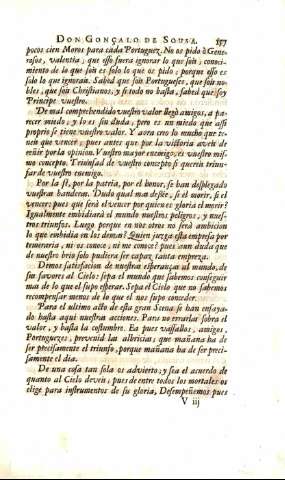 DON GONÇALO DE SOUSA. 157
pocos cien Moros para cada Portuguez. No os pido ò Gene-
rosos, valentia; que esso fuera ignorar lo que sois; conoci-
miento de lo que sois es solo lo que os pido; porque esso es
solo lo que ignorais. Sabed que sois Portugueses, que sois no-
bles, que sois Christianos; y si todo no basta, sabed que soy
Principe vuestro.
De mal comprehendido vuestro valor llegò amigos, a pa-
recer miedo; y lo es sin duda; pero es un miedo que assi
proprio se tiene vuestro valor. Y aora creo lo mucho que te-
neis que vencer; pues antes que por la vitoria aveis de
reñir por la opinion. Vuestro mayor enemigo, es vuestro mis-
mo concepto. Triunfad de vuestro concepto si quereis triun-
far de vuestro enemigo.
Por la fè, por la patria, por el honor, se han desplegado
vuestras banderas. Dudo qual mas desee, si el morir, si el
vencer: pues que serà el vencer por quien es gloria el morir?
Igualmente embidiarà el mundo nuestros peligros, y nues-
tros triunfos. Luego porque en nos otros no serà ambicion
lo que embidia en los demas? Quien juzga esta impresa por
temeraria, ni os conoce, ni me conoce? pues aun duda que
de nuestro brio solo pudiera ser capaz tanta empreza.
Demos satisfacion de nuestras esperanças al mundo, de
sus favores al Cielo: sepa el mundo que sabemos conseguir
mas de lo que el supo esperar. Sepa el Cielo que no sabemos
recompensar menos de lo que el nos supo conceder.
Para el ultimo acto de esta gran Scena se han ensaya-
do hasta aqui nuestras acciones. Para no errarla sobra el
valor, y basta la costumbre. Ea pues vassallos, amigos,
Portuguezes, prevenid las albricias: que mañana ha de
ser precisamente el triunfo, porque mañana ha de ser preci-
samente el dia.
De una cosa tan sola os advierto; y sea el acuerdo de
quanto al Cielo deveis; pues de entre todos los mortales os
elige para instrumentos de su gloria, Desempeñemos pues
V iij